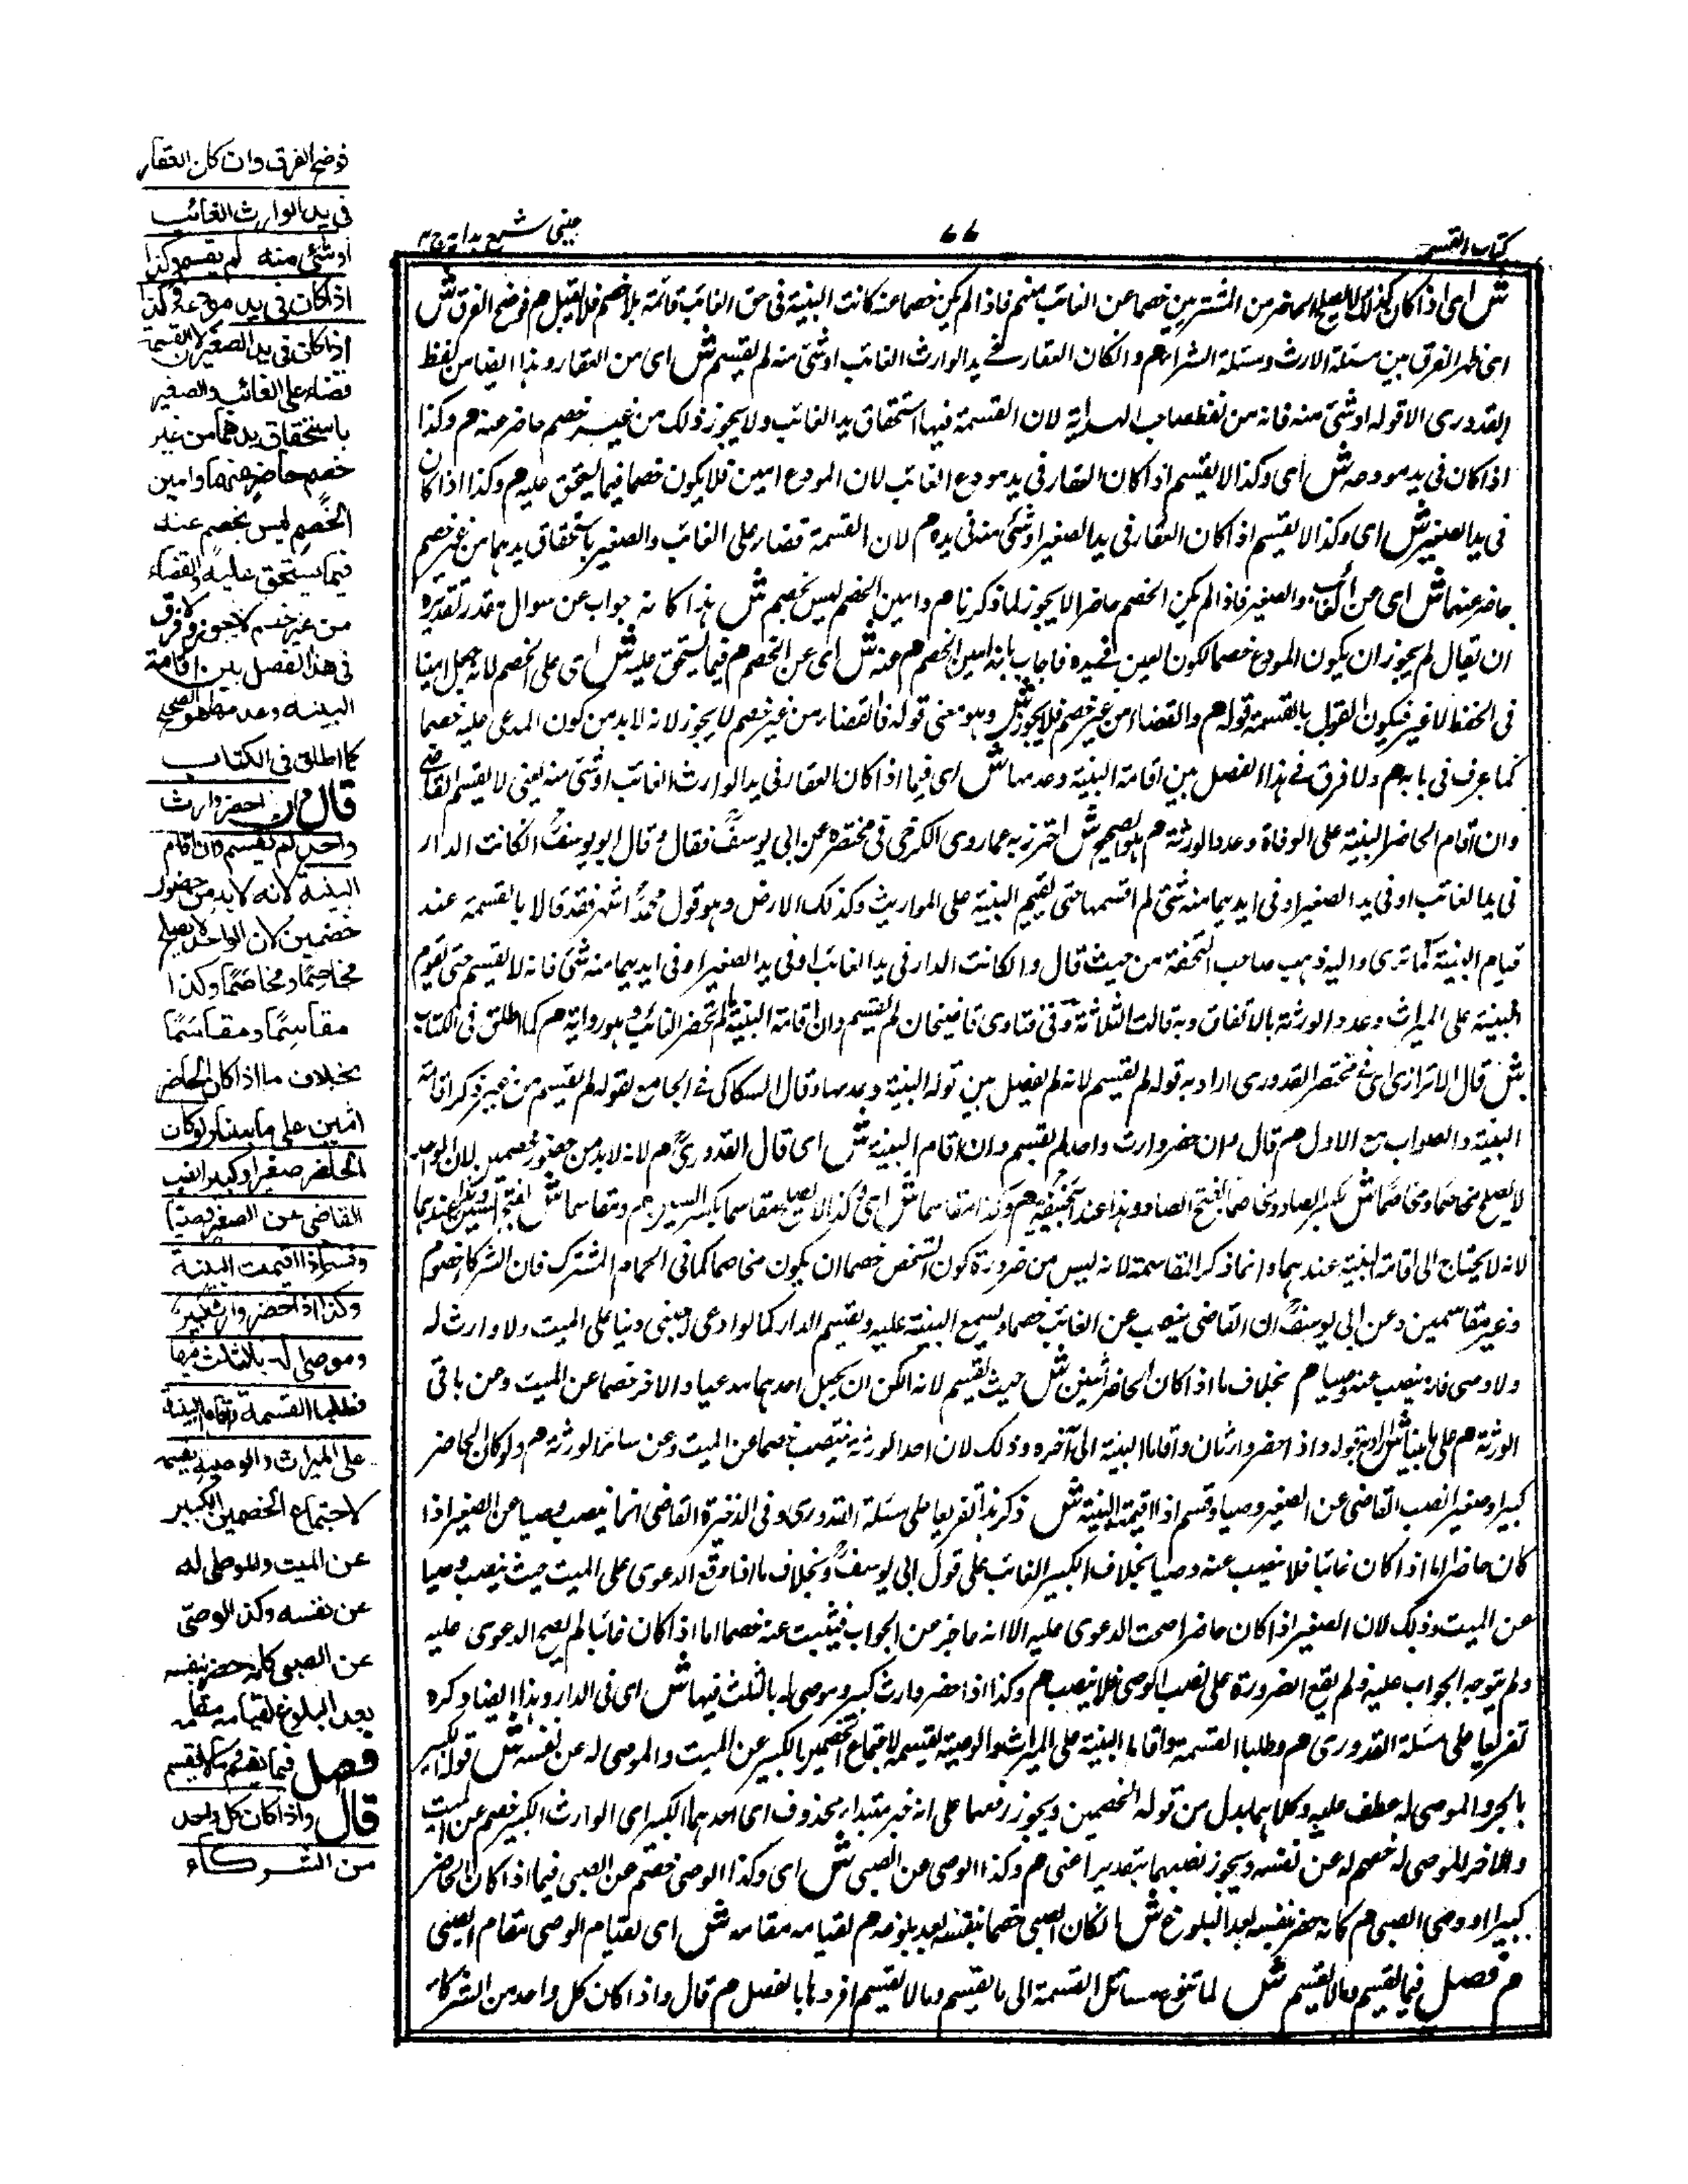 كتاب القسمة
٤٤
عينى شرح هداية ج ٤
ش اى اذا كان كذلك لا يصلح الحاضر من المشتريين خصما عن الغائب منهم فاذا لم يكن خصما عنه كانت البينة فى حق الغائب قائمة بلا خصم فلا تقبل م فوضح الفرق ش
اى ظهر الفرق بين مسئلة الارث ومسئلة الشراء م وان كان العقار فى يد الوارث الغائب او شئ منه لم يقسم ش اى من العقار وهذا ايضا من لفظ
القدورى الا قوله او شئ منه فانه من لفظ صاحب الهداية لان القسمة فيها استحقاق يد الغائب ولا يجوز ذلك من غير خصم حاضر عنه م وكذا
اذا كان فى يد مودعه ش اى وكذا لا يقسم اذا كان العقار فى يد مودع الغائب لان المودع امين فلا يكون خصما فيما يستحق عليه م وكذا اذا كان
فى يد الصغير ش اى وكذا لا يقسم اذا كان العقار فى يد الصغير او شئ منه فى يده م لان القسمة قضاء على الغائب والصغير باستحقاق يدهما من غير خصم
حاضر عنهما ش اى عن الغائب والصغير فاذا لم يكن الخصم حاضرا لا يجوز لما ذكرنا م وامين الخصم ليس بخصم ش هذا كانه جواب عن سوال مقدر تقديره
ان يقال لم يجوز ان يكون المودع خصما لكون العين فى يده فاجاب بانه امين الخصم م عنه ش اى عن الخصم م فيما يستحق عليه ش اى على الخصم لانه جعل امينا
فى الحفظ لا غير فيكون القول بالقسمة قوله م والقضاء من غير خصم فلا يجوز ش وهو معنى قوله فالقضاء من غير خصم لا يجوز لانه لابد من كون المدعى عليه خصما
كما عرف فى بابه م ولا فرق فى هذا الفصل بين اقامة البينة وعدمها ش اى فيما اذا كان العقار فى يد الوارث الغائب او شئ منه يعنى لا يقسم القاضى
وان اقام الحاضر البينة على الوفاة وعدد الورثة م هو الصحيح ش احترز به عما روى الكرخى فى مختصره عن ابى يوسف فقال قال ابو يوسف ان كانت الدار
فى يد الغائب او فى يد الصغير او فى ايديهما منه شئ لم اقسمها حتى تقيم البينة على المواريث وكذلك الارض وهو قول محمد اشهر فقد قالا بالقسمة عند
قيام البينة كما ترى واليه ذهب صاحب التحفة من حيث قال وان كانت الدار فى يد الغائب او فى يد الصغير او فى ايديهما منه شئ فانه لا يقسم حتى تقوم
البينة على الميراث وعدد الورثة بالاتفاق وبه قالت الثلاثة وفى فتاوى قاضيخان لم يقسم وان اقامة البينة ما لم يحضر الغائب وهو رواية م كما اطلق فى الكتاب
ش قال الاترازى اى فى مختصر القدورى اراد به قوله لم يقسم لانه لم يفصل بين قوله البينة وعدمها وقال السكاكى فى الجامع لقوله لم يقسم من غير ذكر اقامة
البينة والصواب مع الاول م قال وان حضر وارث واحد لم يقسم وان اقام البينة ش اى قال القدورى م لانه لابد من حضور خصمين لان الواحد
لا يصلح مخاصما ومخاصما ش بكسر الصاد ومخاصما بفتح الصاد وهذا عند ابى حنيفة م وكذا مقاسما ش اى وكذا لا يصلح مقاسما بكسر السين م ومقاسما ش بفتح السين عندهما
لانه لا يحتاج الى اقامة البينة عندهما وانما ذكر المقاسمة لانه ليس من ضرورة كون الشخص خصما ان يكون مخاصما كما فى الحمام المشترك فان الشركاء خصوم
وغير مقاسمين وعن ابى يوسف ان القاضى ينصب عن الغائب خصما ويسمع البينة عليه ويقسم الدار كما لو ادعى اجنبى دينا على الميت ولا وارث له
ولا وصى فانه ينصب عنه وصيا م بخلاف ما اذا كان الحاضر اثنين ش حيث يقسم لانه امكن ان يجعل احدهما مدعيا والاخر خصما عن الميت وعن باقى
الورثة م على ما بينا ش اراد به قوله واذا حضر وارثان واقاما البينة الى آخره وذلك لان احد الورثة ينتصب خصما عن الميت وعن سائر الورثة م ولو كان الحاضر
كبيرا وصغيرا نصب القاضى عن الصغير وصيا وقسم اذا اقيمت البينة ش ذكر هذا تفريعا على مسئلة القدورى وفى الذخيرة القاضى انما ينصب وصيا عن الصغير اذا
كان حاضرا اما اذا كان غائبا فلا ينصب عنه وصيا بخلاف الكبير الغائب على قول ابى يوسف وبخلاف ما اذا وقع الدعوى على الميت حيث ينصب وصيا
عن الميت وذلك لان الصغير اذا كان حاضرا صحت الدعوى عليه الا انه عاجز من الجواب فينصب عنه خصما اما اذا كان غائبا لم يصح الدعوى عليه
ولم يتوجه الجواب عليه فلم يقع الضرورة على نصب الوصى فلا ينصب م وكذا اذا حضر وارث كبير وموصى له بالثلث فيها ش اى فى الدار وهذا ايضا ذكره
تفريعا على مسئلة القدورى م وطلبا القسمة واقاما البينة على الميراث والوصية يقسمه لاجتماع الخصمين الكبير عن الميت والموصى له عن نفسه ش قوله الكبير
بالجر والموصى له عطف عليه وكلاهما بدل من قوله الخصمين ويجوز رفعهما على انه خبر مبتداء محذوف اى احدهما الكبير اى الوارث الكبير خصم عن الميت
والآخر الموصى له خصم له عن نفسه ويجوز نصبهما بتقدير اعنى م وكذا الوصى عن الصبى ش اى وكذا الوصى خصم عن الصبى فيما اذا كان الحاضر
كبيرا ووصى الصبى م كانه حضر بنفسه بعد البلوغ ش اى لكان الصبى خصما بنفسه بعد بلوغه م لقيامه مقامه ش اى لقيام الوصى مقام الصبى
م فصل فيما يقسم وما لا يقسم ش لما تنوع مسائل القسمة الى ما يقسم وما لا يقسم افردها بالفصل م قال واذا كان كل واحد من الشركاء
فوضح الفرق وان كان العقار
فى يد الوارث الغائب
او شئ منه لم يقسم وكذا
اذا كان فى يد مودعه وكذا
اذا كان فى يد الصغير لان القسمة
قضاء على الغائب والصغير
باستحقاق يدهما من غير
خصم حاضر عنهما وامين
الخصم ليس بخصم عنه
فيما يستحق عليه والقضاء
من غير خصم لا يجوز ولا فرق
فى هذا الفصل بين اقامة
البينة وعدمها هو الصحيح
كما اطلق فى الكتاب
قال وان حضر وارث
واحد لم يقسم وان اقام
البينة لانه لابد من حضور
خصمين لان الواحد لا يصلح
مخاصما ومخاصما وكذا
مقاسما ومقاسما
بخلاف ما اذا كان الحاضر
اثنين على ما بينا ولو كان
الحاضر صغيرا وكبيرا نصب
القاضى عن الصغير وصيا
وقسم اذا اقيمت البينة
وكذا اذا حضر وارث كبير
وموصى له بالثلث فيها
فطلبا القسمة واقاما البينة
على الميراث والوصية يقسمه
لاجتماع الخصمين الكبير
عن الميت والموصى له
عن نفسه وكذا الوصى
عن الصبى كانه حضر بنفسه
بعد البلوغ لقيامه مقامه
فصل فيما يقسم وما لا يقسم
قال واذا كان كل واحد
من الشركاء